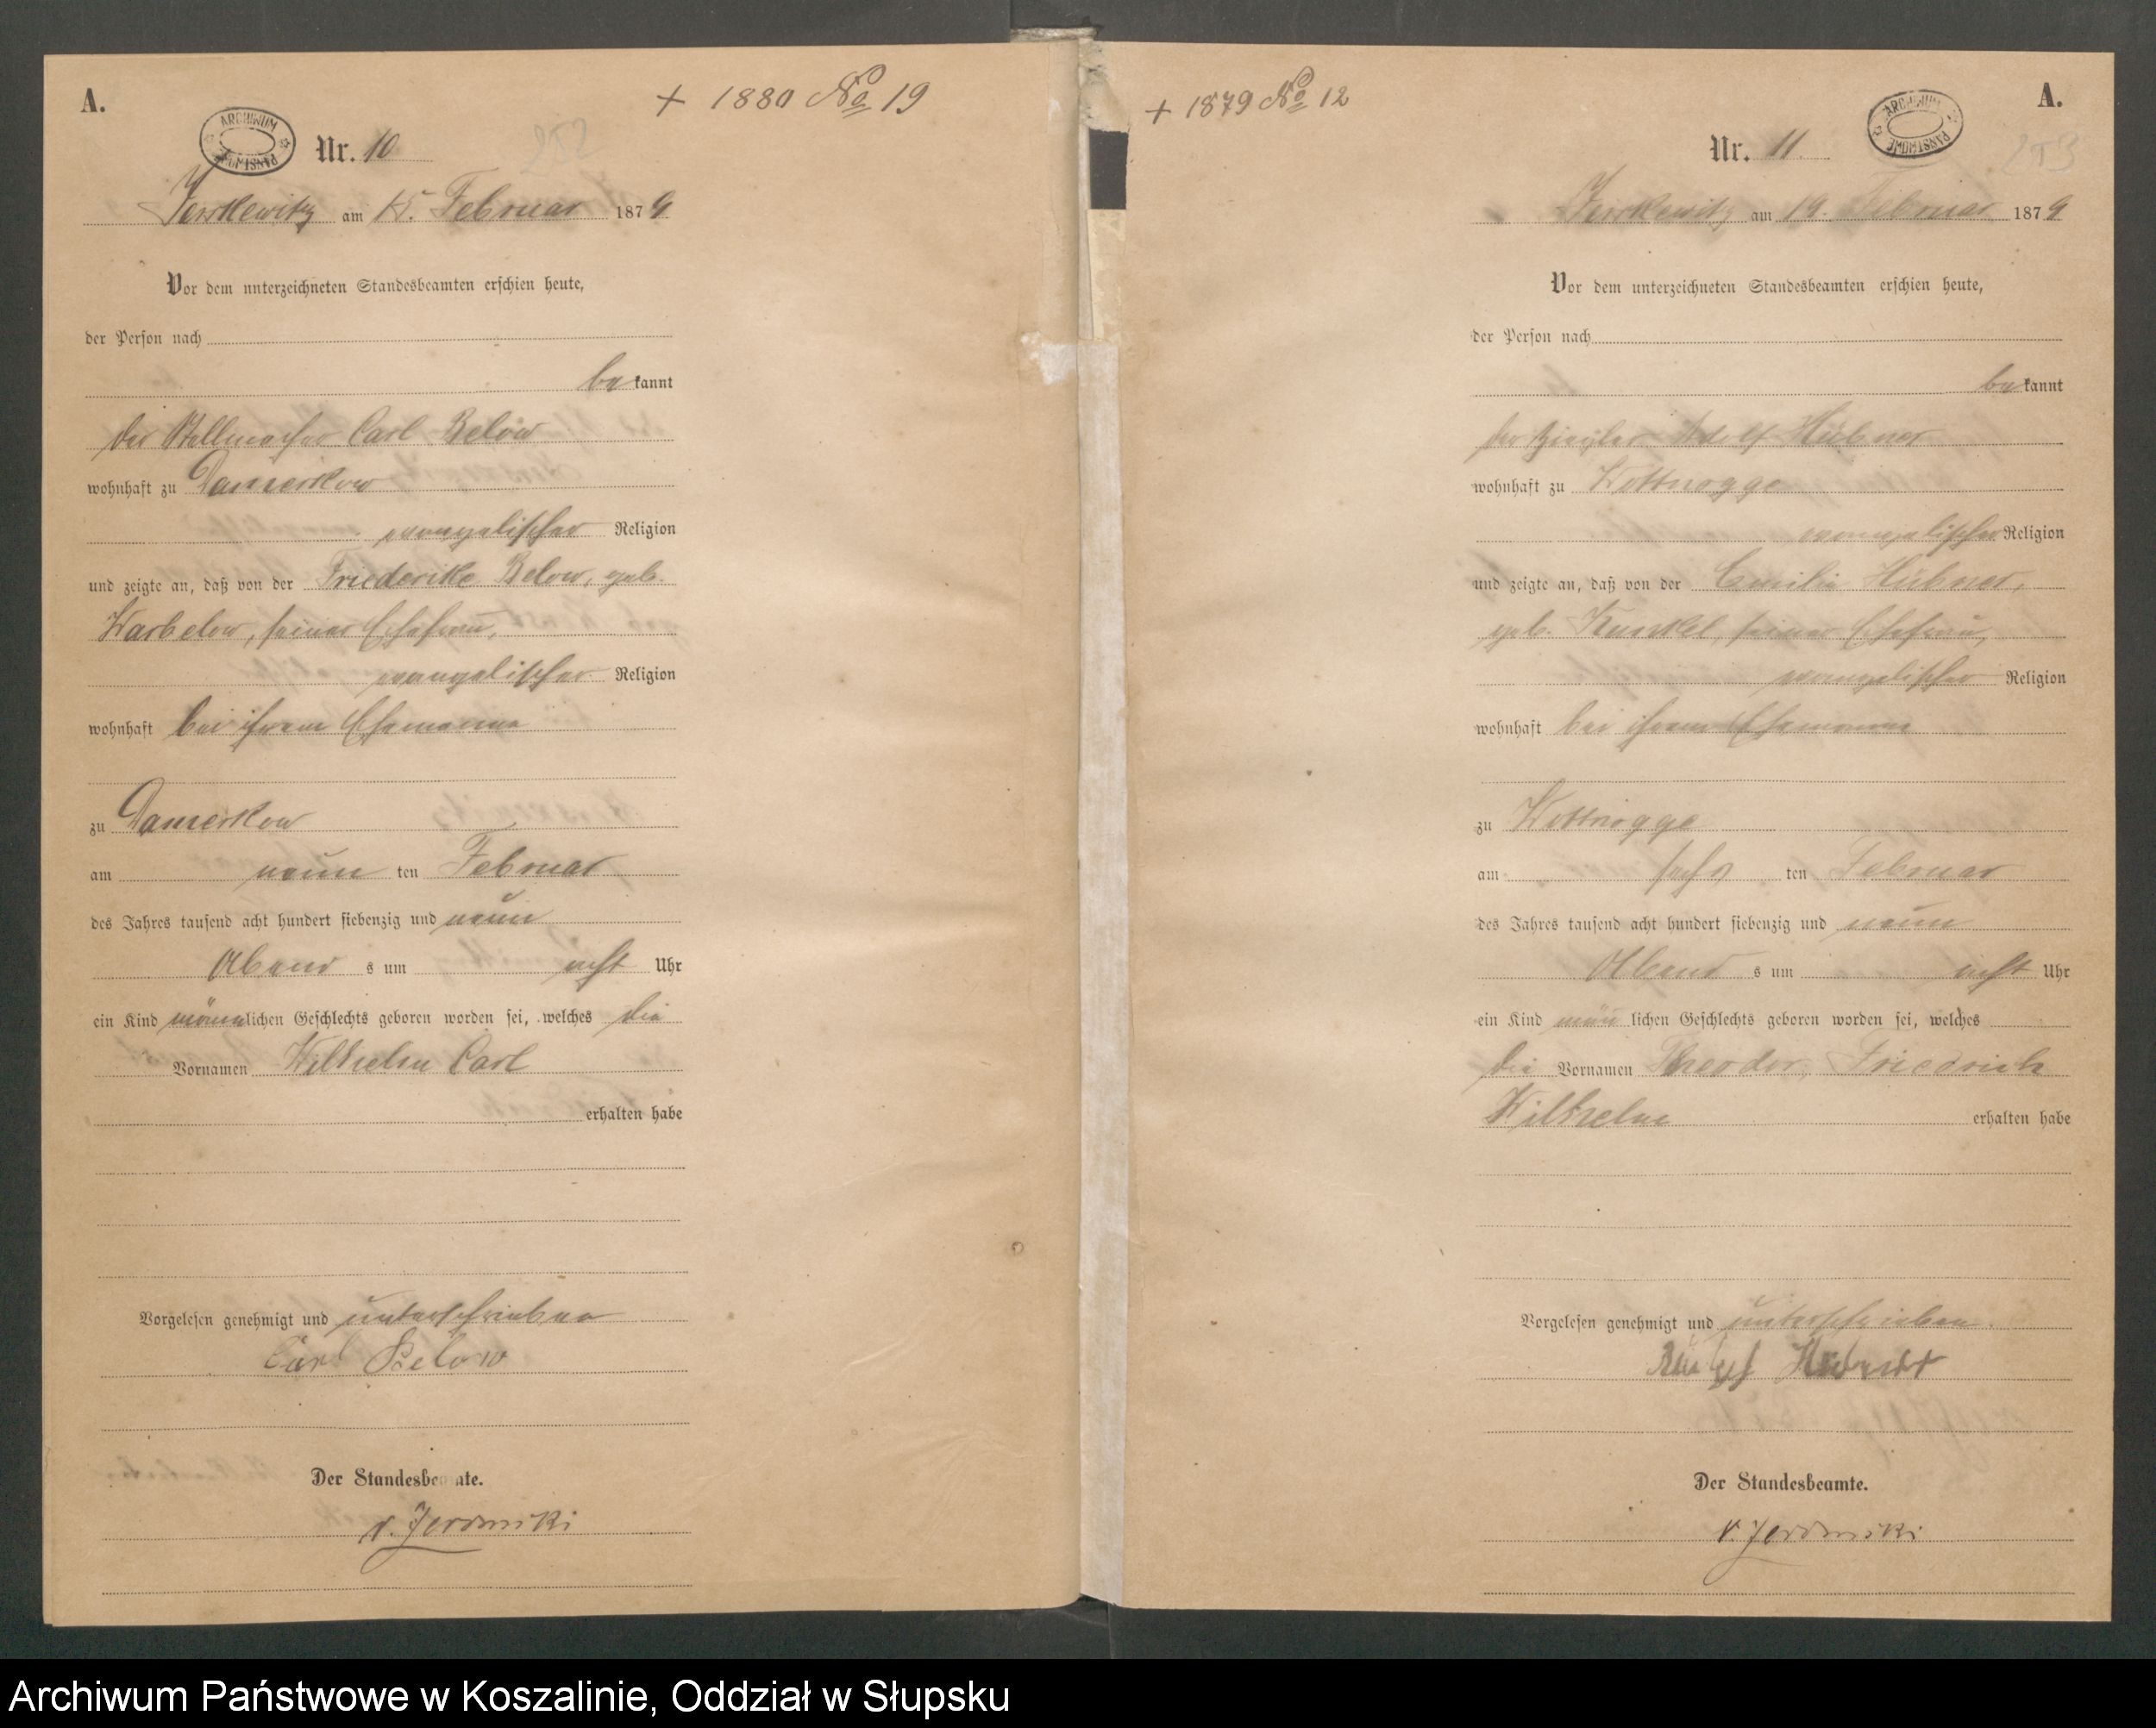 A.
+ 1880 No 19
ARCHIWUM PAŃSTWOWE
Nr. 10
252
Jerskewitz am 15. Februar 1879
Vor dem unterzeichneten Standesbeamten erschien heute,
der Person nach
bekannt
der Stellmacher Carl Below
wohnhaft zu Damerkow
evangelischer Religion
und zeigte an, daß von der Friederike Below, geb.
Warbelow, seiner Ehefrau,
evangelischer Religion
wohnhaft bei ihrem Ehemanne
zu Damerkow
am neun ten Februar
des Jahres tausend acht hundert siebenzig und neun
Abend s um acht Uhr
ein Kind männlichen Geschlechts geboren worden sei, welches die
Vornamen Wilhelm Carl
erhalten habe
Vorgelesen genehmigt und unterschrieben
Carl Below
Der Standesbeamte.
+ 1879 No 12
A.
ARCHIWUM PAŃSTWOWE
Nr. 11.
253
Jerskewitz am 19. Februar 1879
Vor dem unterzeichneten Standesbeamten erschien heute,
der Person nach
bekannt
der Ziegler Adolf Hübner
wohnhaft zu Wottnogge
evangelischer Religion
und zeigte an, daß von der Emilie Hübner,
geb. Kunkel, seiner Ehefrau,
evangelischer Religion
wohnhaft bei ihrem Ehemann
zu Wottnogge
am sechs ten Februar
des Jahres tausend acht hundert siebenzig und neun
Abend s um acht Uhr
ein Kind männ lichen Geschlechts geboren worden sei, welches
die Vornamen Theodor, Friedrich
Wilhelm erhalten habe
Vorgelesen genehmigt und unterschrieben.
Hübner
Der Standesbeamte.
Archiwum Państwowe w Koszalinie, Oddział w Słupsku